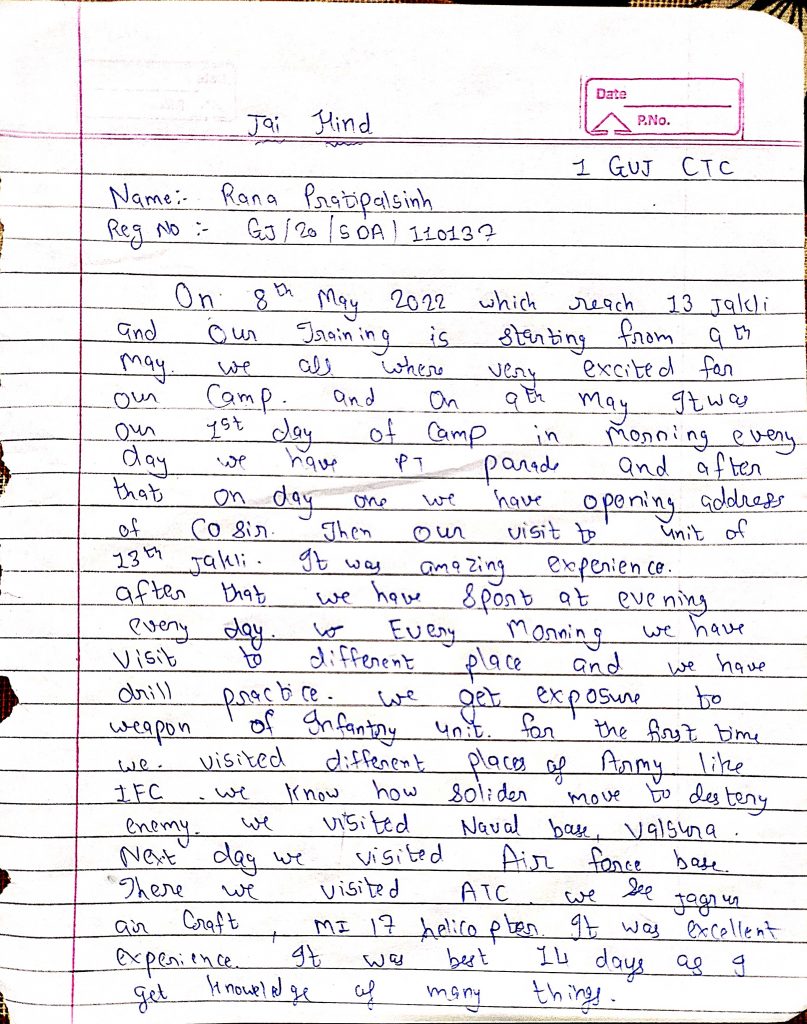 Date
P.No.
Jai Hind
1 GUJ CTC
Name:- Rana Pratipalsinh
Reg No :- GJ/20/SDA/110137
On 8th May 2022 which reach 13 Jakli
and Our Training is starting from 9th
May. we all where very excited for
our Camp. and On 9th May It was
our 1st day of Camp in Morning every
day we have PT parade and after
that on day one we have opening address
of CO sir. Then our visit to unit of
13th Jakli. It was amazing experience.
after that we have Sport at evening
every day. Every Morning we have
visit to different place and we have
drill practice. we get exposure to
weapon of Infantry unit. for the first time
we. visited different places of Army like
IFC. we Know how Solider move to destery
enemy. we visited Naval base, Valsura.
Next day we visited Air force base.
There we visited ATC. we see Jagrur
air Craft, MI 17 helicopter. It was excellent
experience. It was best 14 days as I
get knoweldge of many things.